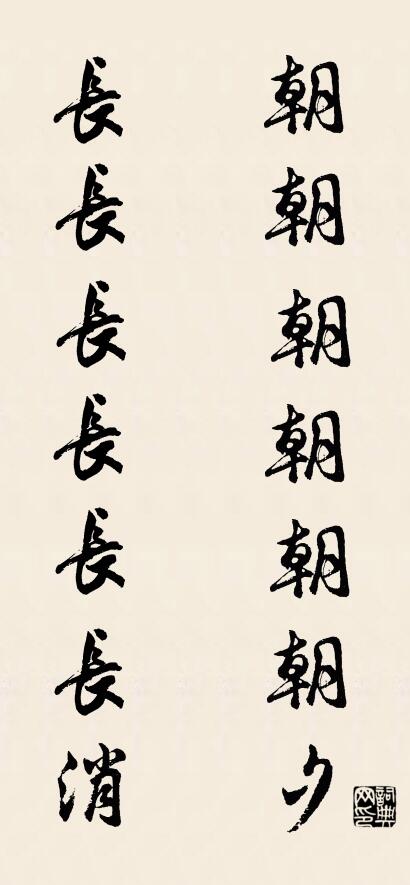 朝朝朝朝朝朝夕
長長長長長長消
詞典网印